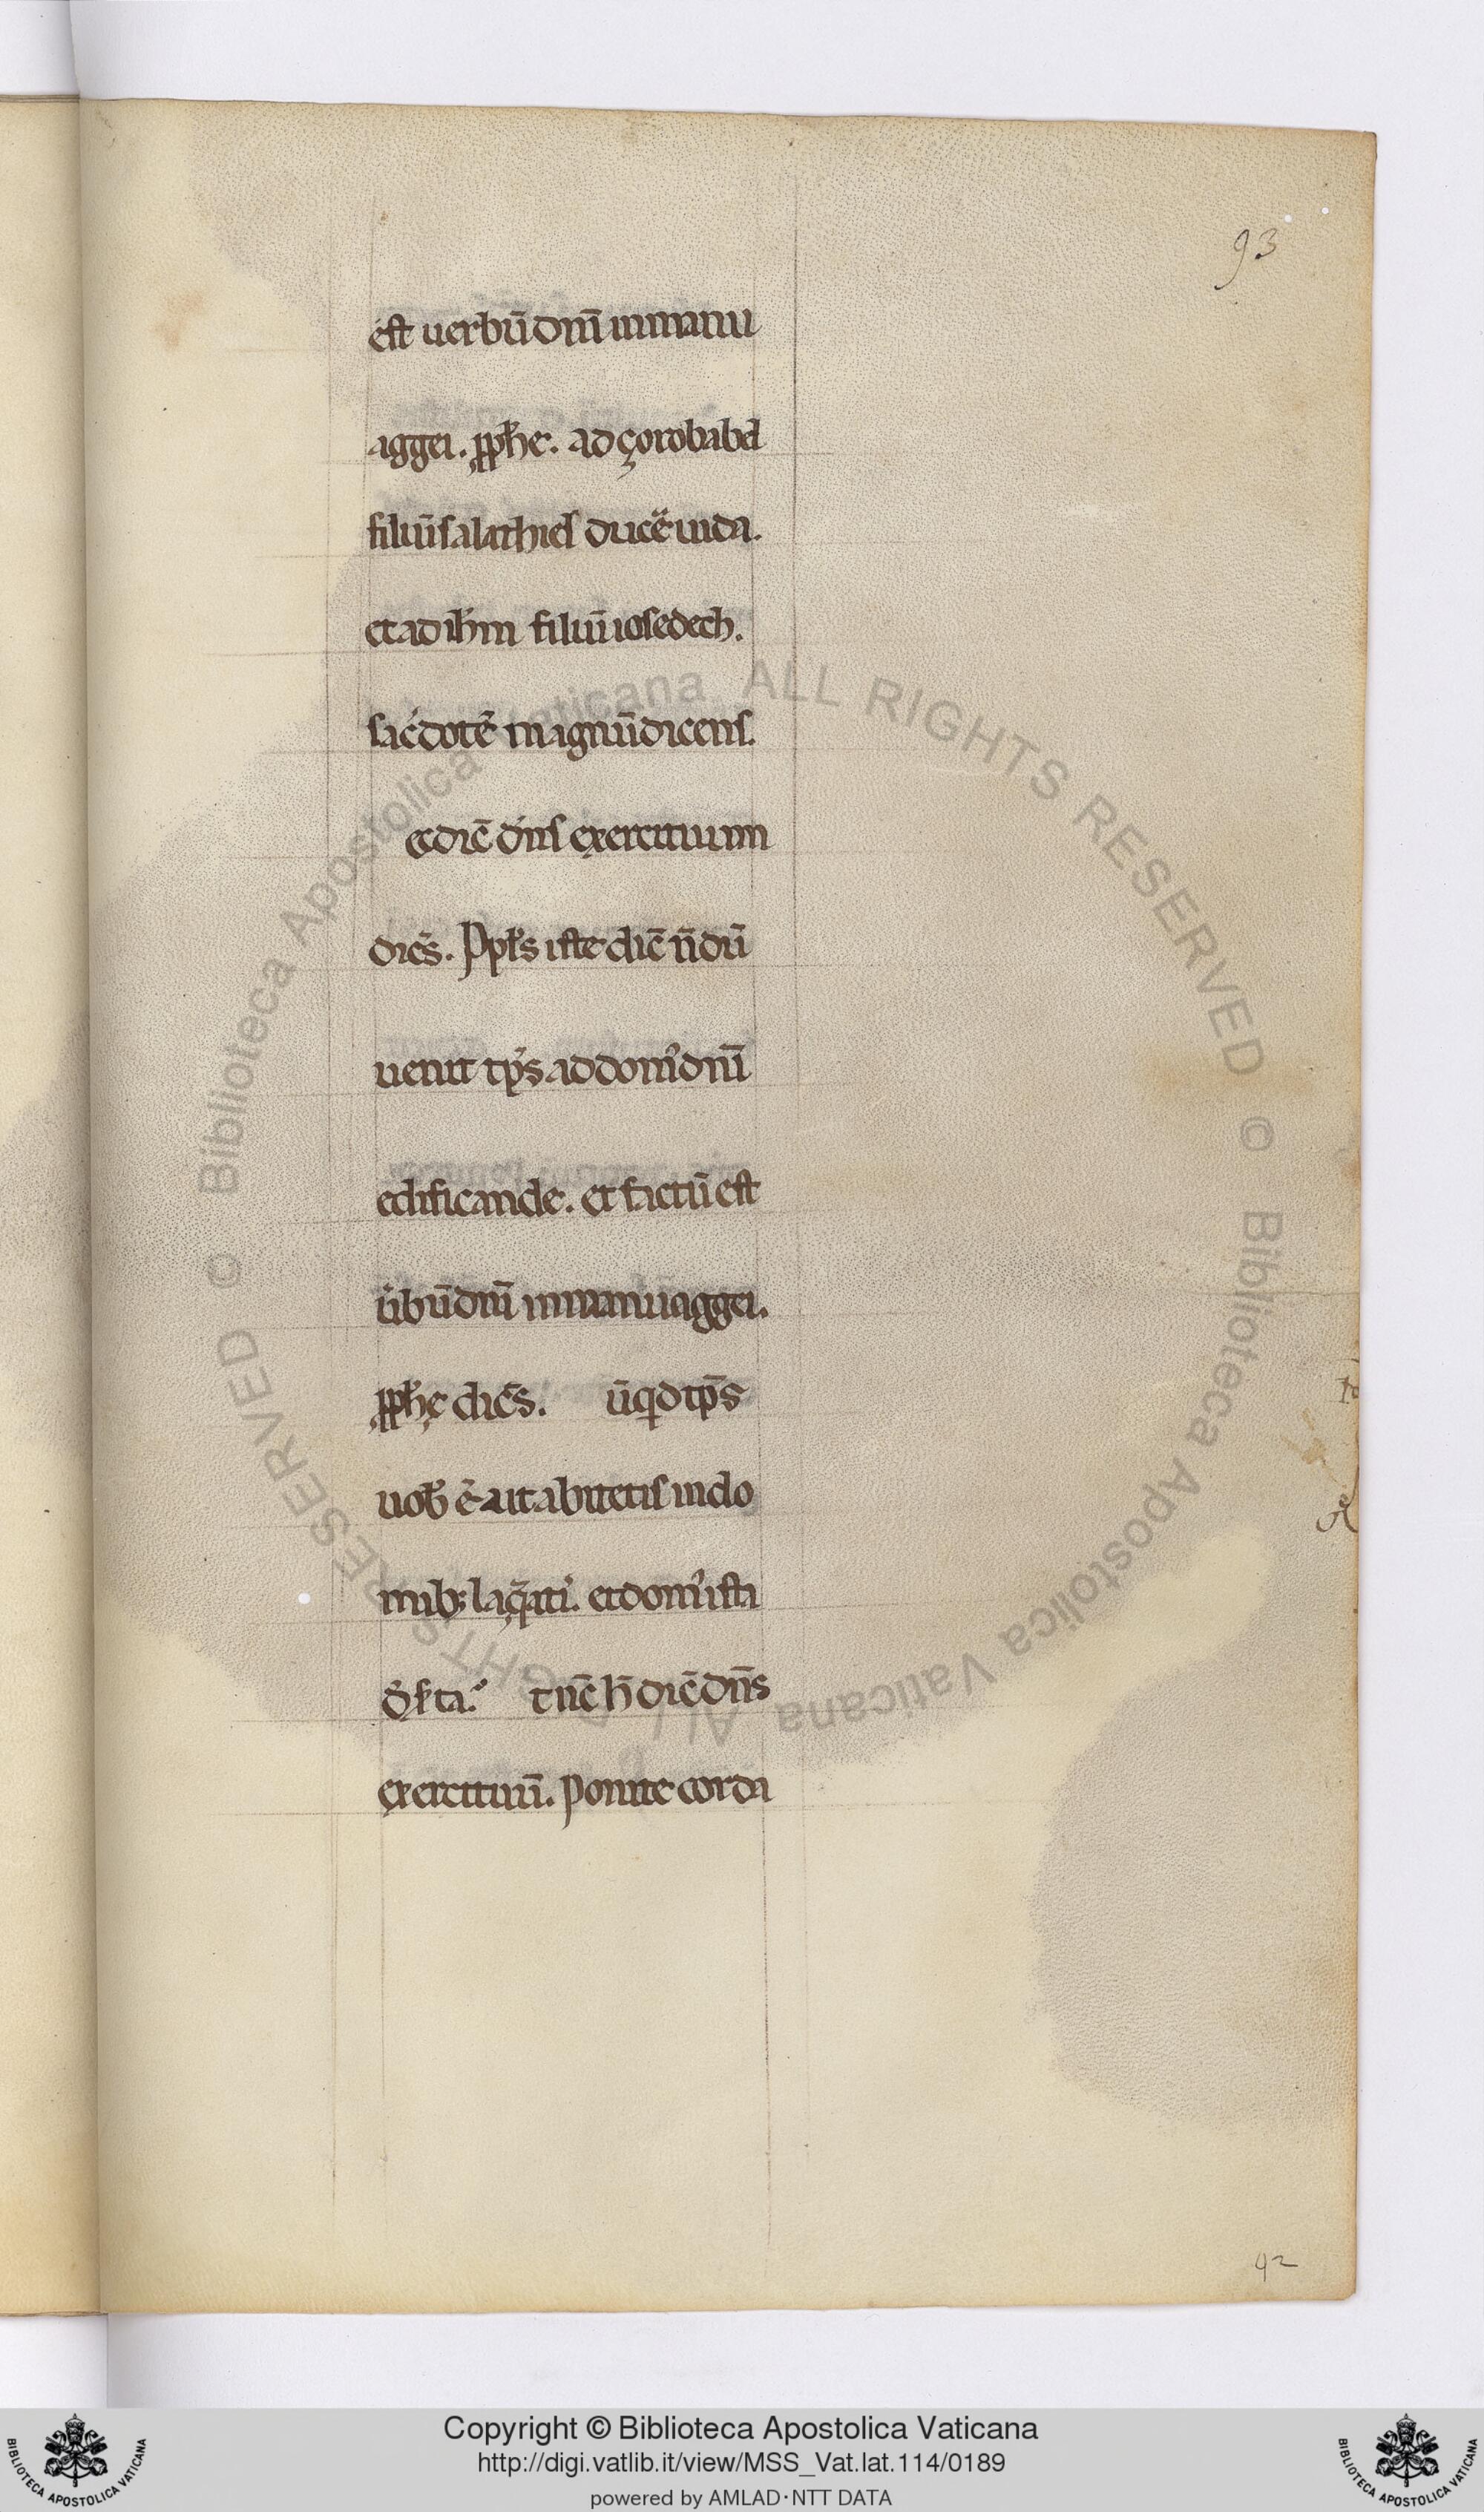 93
est uerbū dnī in manu
aggei. pphe. ad çorobabel
filiū salathiel ducē iuda.
et ad ihm filiū iosedech.
sac̓dotē magnū dicens.
ec dic̄ dn̄s exercituum
dicēs. Ppl̓s iste dic̄ n̄dū
uenit tp̄s ad dom᷒ dnī
edificande. et factū est
ūbū dnī in manu aggei.
pphę dicēs. ūqd tp̄s
uob̄ ē aut abitetis in do
mib; laq̄ati. et dom᷒ ista
tūc h̄ dic̄ dn̄s
exercituū. Ponite corda
92
© Biblioteca Apostolica Vaticana ALL RIGHTS RESERVED © Biblioteca Apostolica Vaticana ALL RIGHTS RESERVED
Copyright © Biblioteca Apostolica Vaticana
http://digi.vatlib.it/view/MSS_Vat.lat.114/0189
powered by AMLAD·NTT DATA
BIBLIOTECA APOSTOLICA VATICANA
BIBLIOTECA APOSTOLICA VATICANA